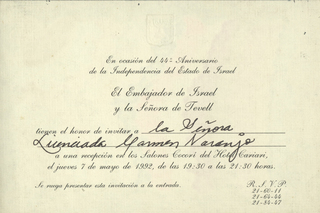 En ocasión del 44º Aniversario
de la Independencia del Estado de Israel
El Embajador de Israel
y la Señora de Tevell
tienen el honor de invitar a la Señora
Licenciada Carmen Naranjo
a una recepción en los Salones Cocorí del Hotel Cariari,
el jueves 7 de mayo de 1992, de las 19:30 a las 21:30 horas.
Se ruega presentar esta invitación a la entrada.
R. S. V. P.
21-60-11
21-64-44